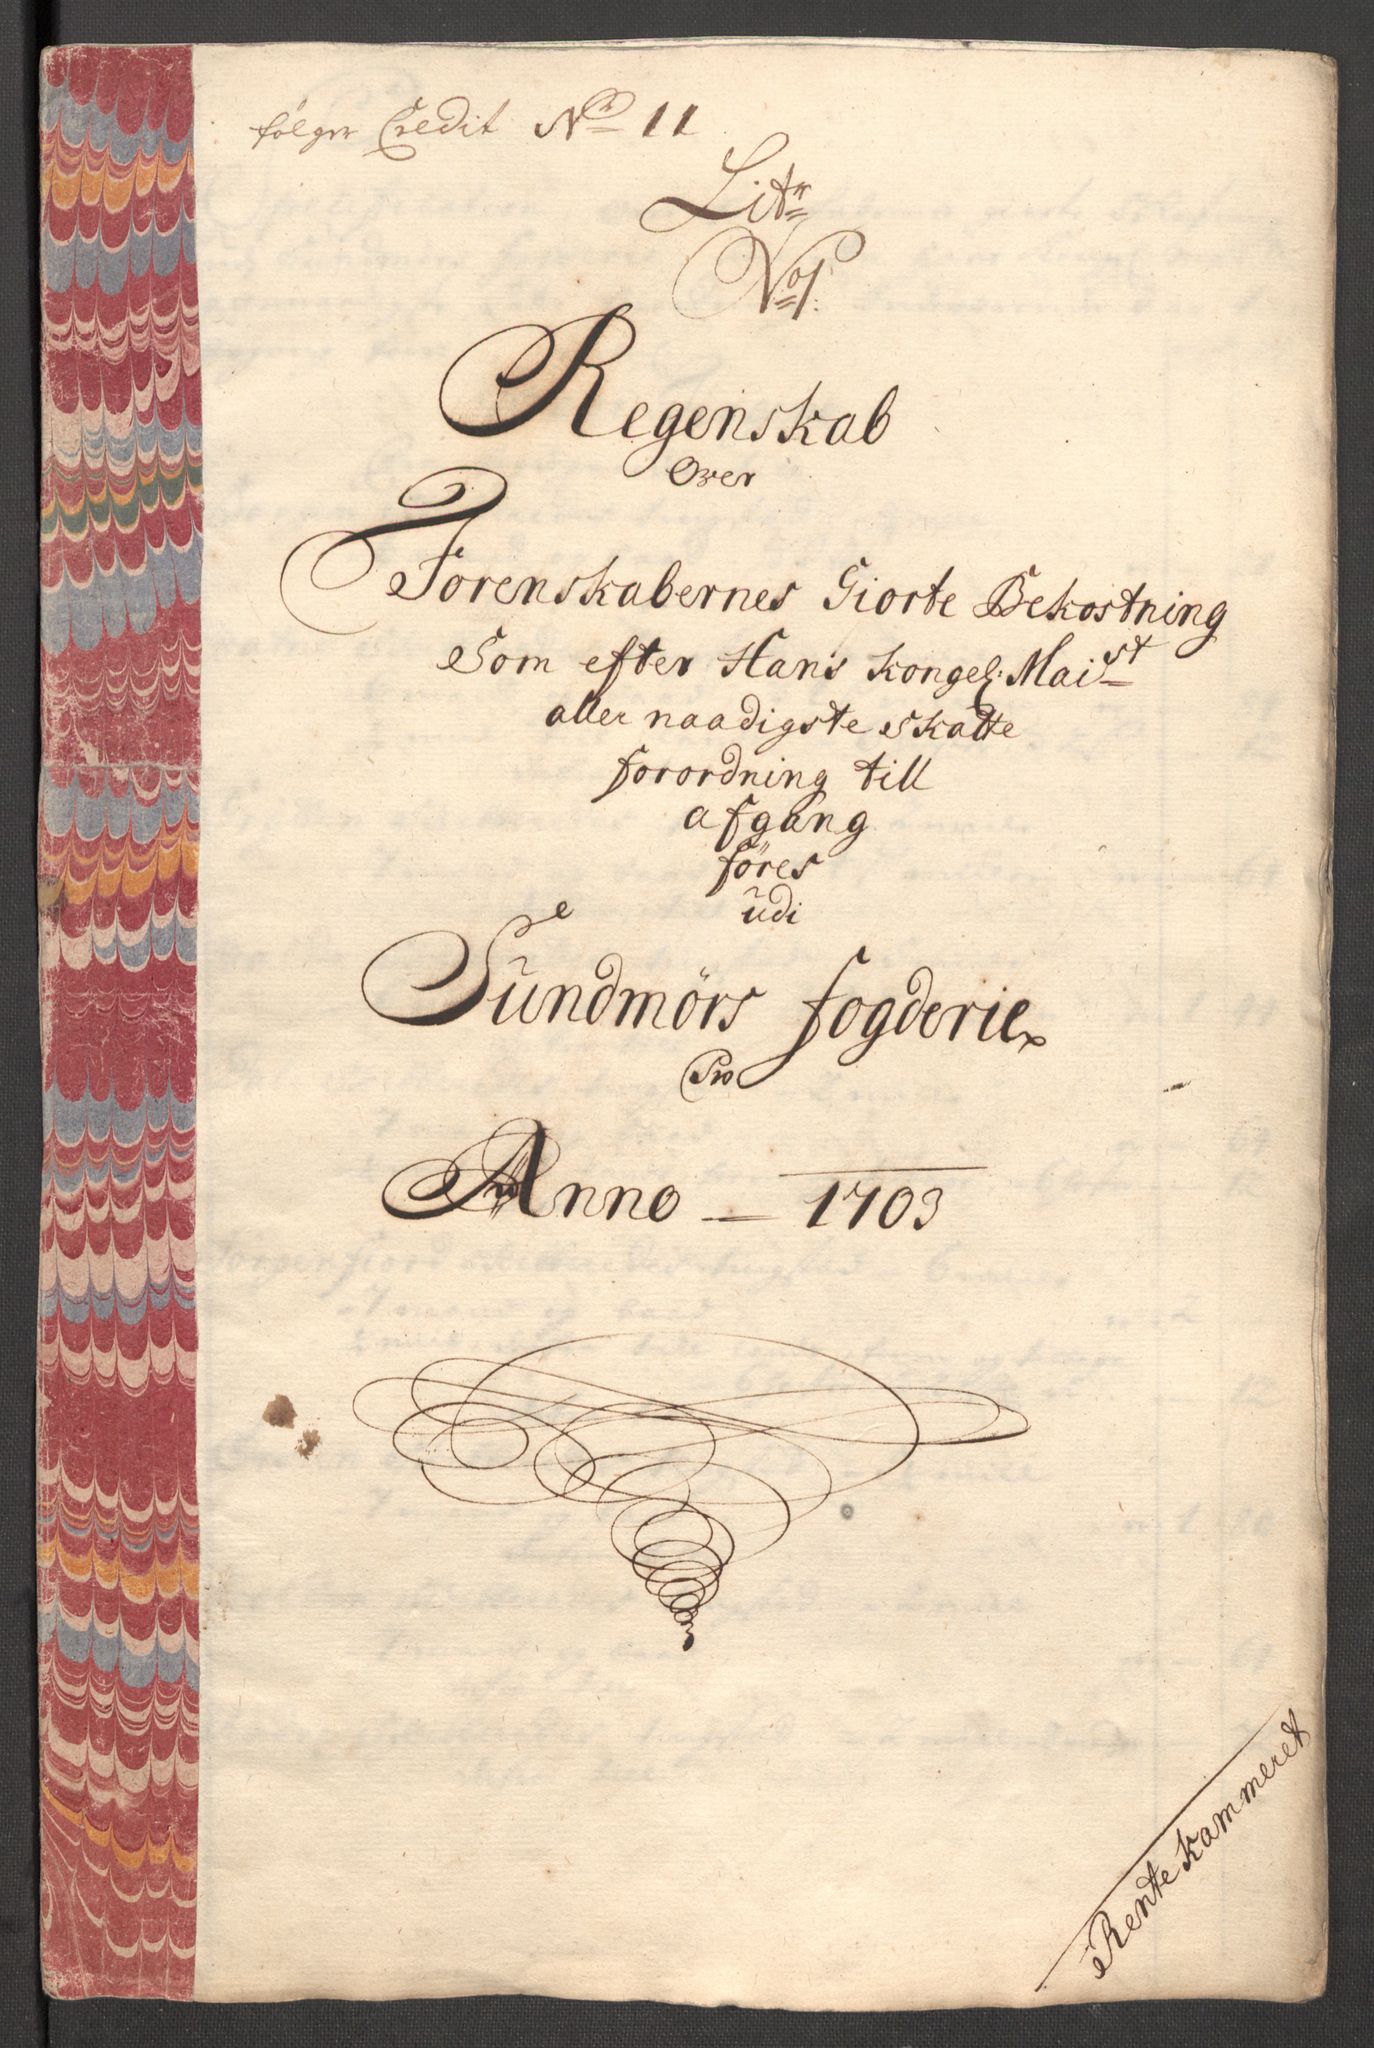 følger Credit No 11
Litr
No 1.
Regenskab
Over
Forenskabernes Giorte Bekostning
Som efter Hans Kongel: Maist
aller naadigste skatte
forordning till
afgang
föres
udi
Sundmörs fogderie
Pro
Anno - 1703
Rente Kammeret